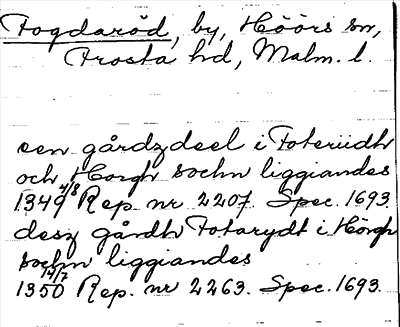 Fogdaröd, by, Höörs sn,
Frosta hd, Malm. l.
een gårdzdeel i Foteriidh
och Horgh sochn liggiandes
1349 4/8 Rep. nr 2207. Spec. 1693.
desz gårdh Fotarydt i Hörgh
sochn liggiandes
1350 14/7 Rep. nr 2263. Spec. 1693.